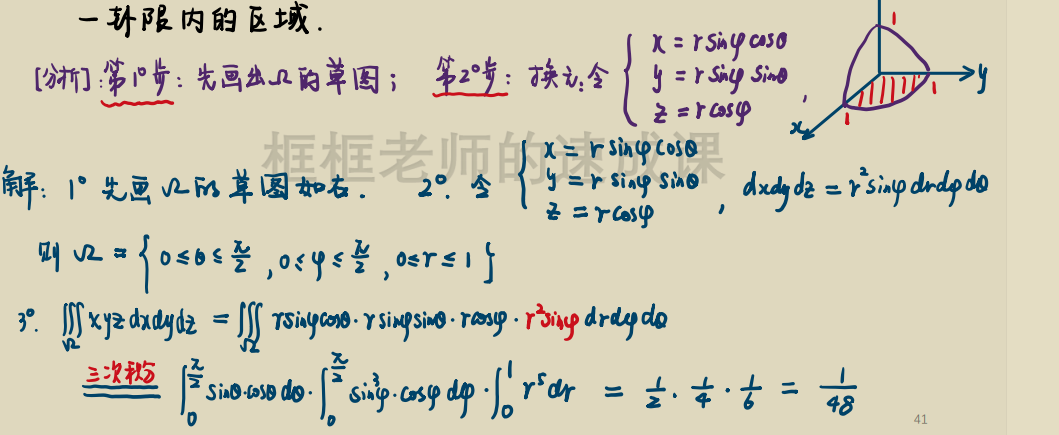 一卦限内的区域.
[分析]:第1°步:先画出Ω的草图; 第2°步:换元:令 { x = r sinφ cosθ
y = r sinφ sinθ
z = r cosφ ,
1
1
1
y
x
框框老师的速成课
解: 1° 先画Ω的草图如右. 2°. 令 { x = r sinφ cosθ
y = r sinφ sinθ
z = r cosφ , dxdydz = r² sinφ dr dφ dθ
则 Ω = { 0 ≤ θ ≤ π/2 , 0 ≤ φ ≤ π/2 , 0 ≤ r ≤ 1 }
3°. ∭_Ω xyz dxdydz = ∭_Ω r sinφ cosθ · r sinφ sinθ · r cosφ · r² sinφ dr dφ dθ
三次积分 ∫_0^{π/2} sinθ · cosθ dθ · ∫_0^{π/2} sin³φ · cosφ dφ · ∫_0^1 r⁵ dr = 1/2 · 1/4 · 1/6 = 1/48
41